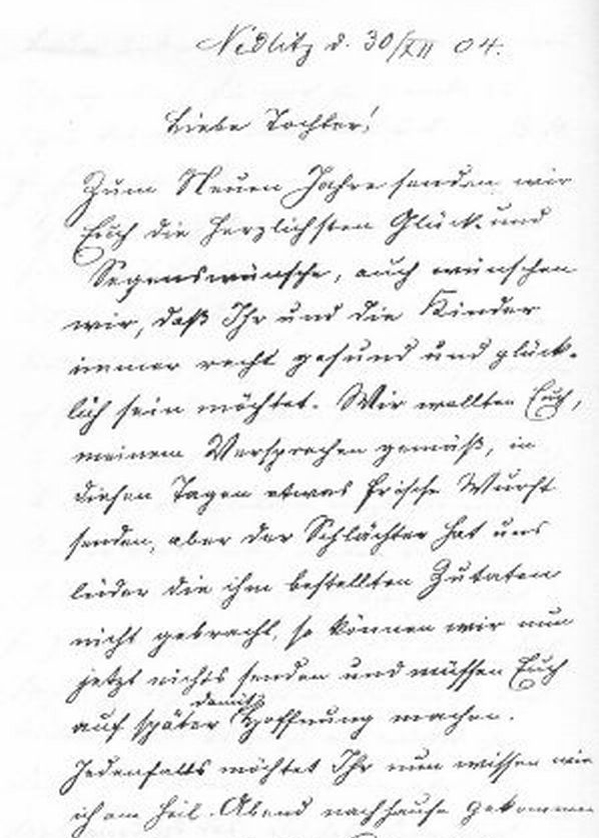 Nedlitz d. 30/XII 04.
Liebe Tochter!
Zum Neuen Jahre senden wir
Euch die herzlichsten Glück- und
Segenswünsche, auch wünschen
wir, daß Ihr und die Kinder
immer recht gesund und glück-
lich sein möchtet. Wir wollten Euch,
meinem Versprechen gemäß, in
diesen Tagen etwas frische Wurst
senden, aber der Schlächter hat uns
leider die ihm bestellten Zutaten
nicht gebracht, so können wir nun
jetzt nichts senden und müssen Euch
damit
auf später Hoffnung machen.
Jedenfalls möchtet Ihr nun wissen wie
ich am heil. Abend nach hause gekommen